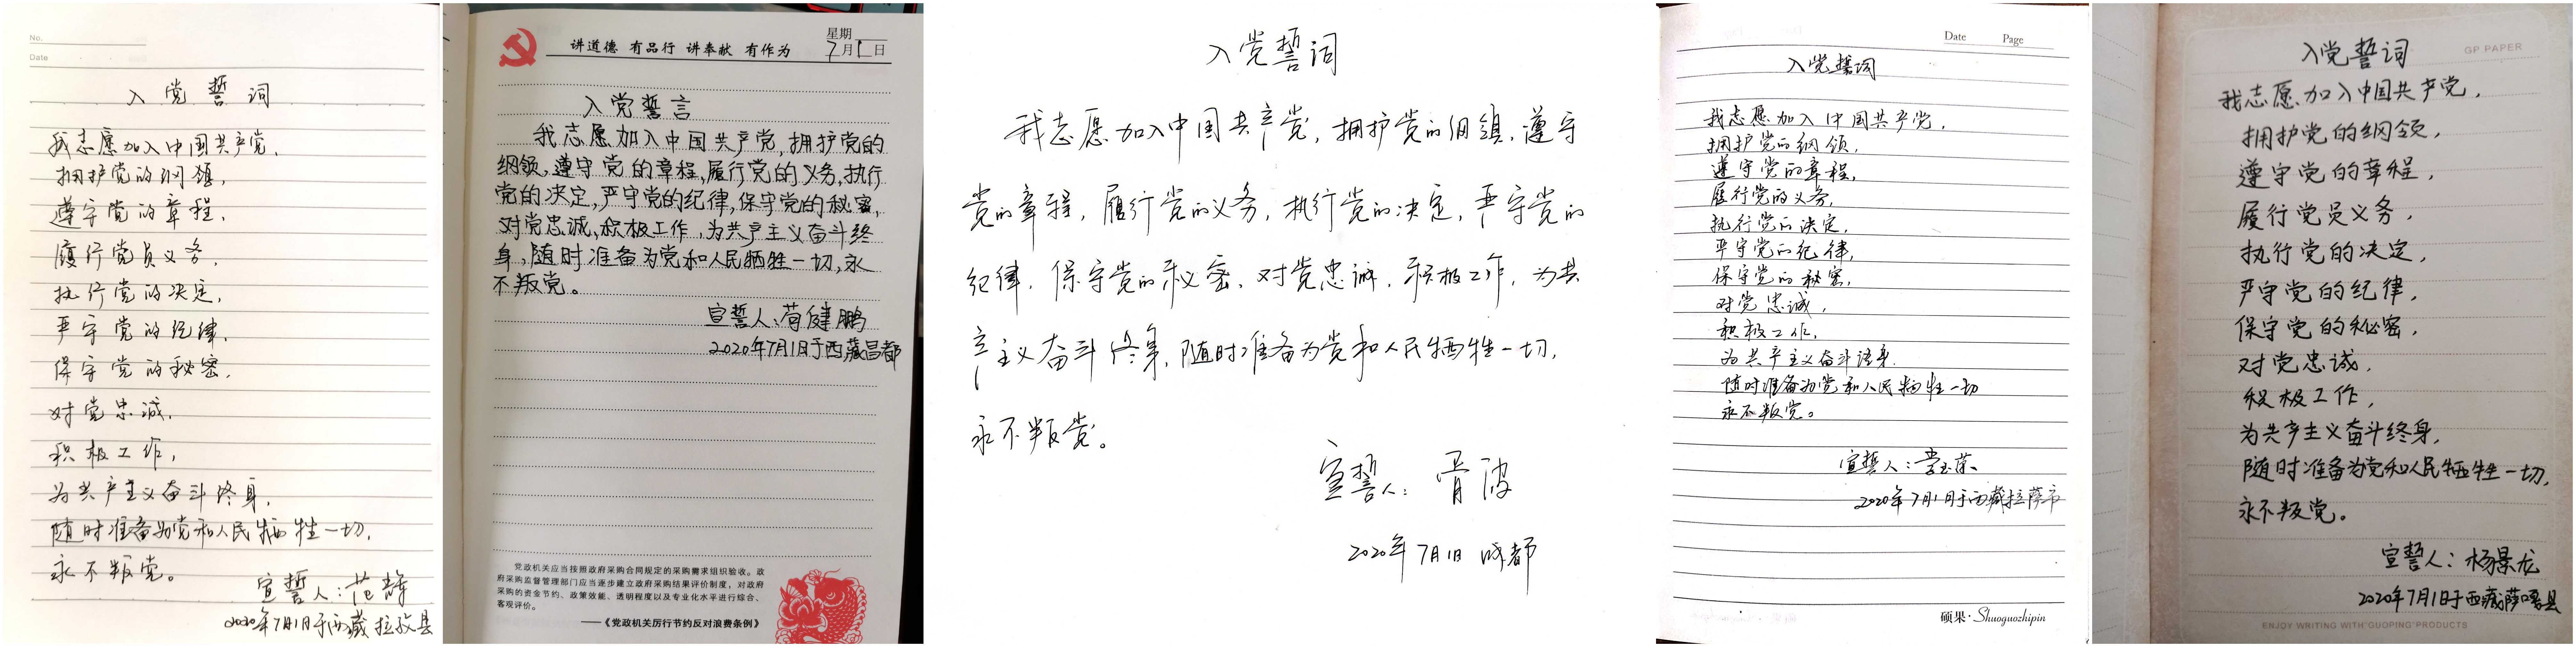 No.
Date
入党誓词
我志愿加入中国共产党,
拥护党的纲领,
遵守党的章程,
履行党员义务,
执行党的决定,
严守党的纪律,
保守党的秘密,
对党忠诚,
积极工作,
为共产主义奋斗终身,
随时准备为党和人民牺牲一切,
永不叛党。
宣誓人:范静
2020年7月1日于西藏拉孜县
讲道德 有品行 讲奉献 有作为
星期
7月1日
入党誓言
我志愿加入中国共产党,拥护党的
纲领,遵守党的章程,履行党的义务,执行
党的决定,严守党的纪律,保守党的秘密,
对党忠诚,积极工作,为共产主义奋斗终
身,随时准备为党和人民牺牲一切,永
不叛党。
宣誓人:荀健鹏
2020年7月1日于西藏昌都
党政机关应当按照政府采购合同规定的采购需求组织验收。政
府采购监督管理部门应当逐步建立政府采购结果评价制度,对政府
采购的资金节约、政策效能、透明程度以及专业化水平进行综合、
客观评价。
——《党政机关厉行节约反对浪费条例》
入党誓词
我志愿加入中国共产党,拥护党的纲领,遵守
党的章程,履行党的义务,执行党的决定,严守党的
纪律,保守党的秘密,对党忠诚,积极工作,为共
产主义奋斗终身,随时准备为党和人民牺牲一切,
永不叛党。
宣誓人:胥波
2020年7月1日 成都
Date Page
入党誓词
我志愿加入中国共产党,
拥护党的纲领,
遵守党的章程,
履行党的义务,
执行党的决定,
严守党的纪律,
保守党的秘密,
对党忠诚,
积极工作,
为共产主义奋斗终身
随时准备为党和人民牺牲一切
永不叛党。
宣誓人:李玉荣
2020年7月1日于西藏拉萨市
硕果·Shuoguozhipin
GP PAPER
入党誓词
我志愿加入中国共产党,
拥护党的纲领,
遵守党的章程,
履行党员义务,
执行党的决定,
严守党的纪律,
保守党的秘密,
对党忠诚,
积极工作,
为共产主义奋斗终身,
随时准备为党和人民牺牲一切,
永不叛党。
宣誓人:杨景龙
2020年7月1日于西藏萨嘎县
ENJOY WRITING WITH"GUOPING"PRODUCTS